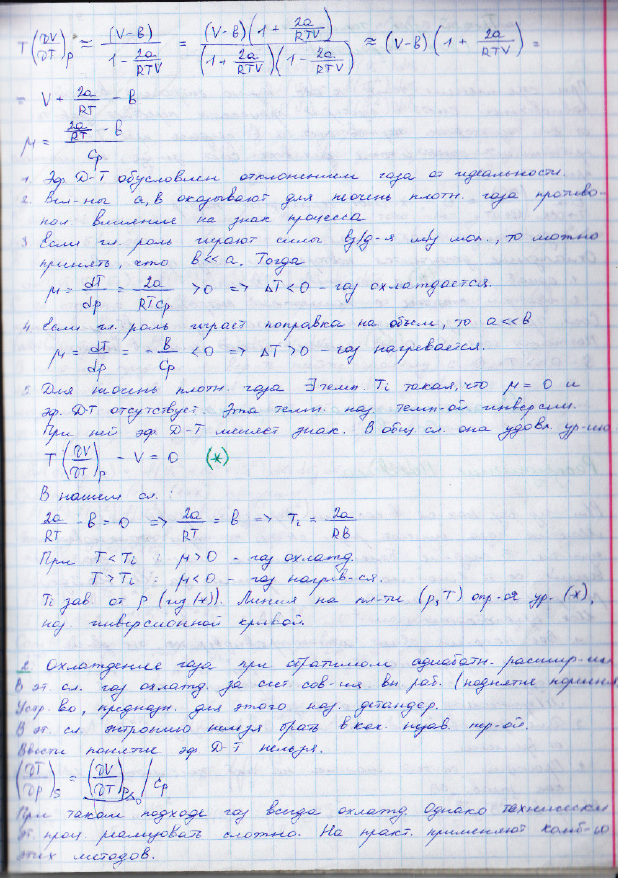 T(∂V/∂T)_p ≃ (V-в)/(1 - 2a/RTV) = (V-в)(1 + 2a/RTV)/((1 + 2a/RTV)(1 - 2a/RTV)) ≈ (V-в)(1 + 2a/RTV) =
= V + 2a/RT - в
μ = (2a/RT - в)/Cp
1. Эф. Д-Т обусловлен отклонением газа от идеальности.
2. Вел-ны а, в оказывают для неочень плотн. газа противо-
пол. влияние на знак процесса
3. Если гл. роль играют силы вз/д-я м/у мол., то можно
принять, что в<<а. Тогда
μ = dT/dp = 2a/RTCp >0 => ΔT<0 - газ охлаждается.
4. Если гл. роль играет поправка на объем, то а<<в
μ = dT/dp = -в/Cp <0 => ΔT>0 - газ нагревается.
5. Для неочень плотн. газа ∃ темп. Ti такая, что μ = 0 и
эф. Д-Т отсутствует. Эта темп. наз. темп-ой инверсии.
При ней эф. Д-Т меняет знак. В общ. сл. она удовл. ур-нию
T(∂V/∂T)_p - V = 0 (*)
В нашем сл. :
2a/RT - в = 0 => 2a/RT = в => Ti = 2a/Rв
При T<Ti : μ>0 - газ охлажд.
T>Ti : μ<0 - газ нагрев-ся.
Ti зав. от р (из (*)). Линия на пл-ти (р,Т) опр-ая ур. (*),
наз. инверсионной кривой.
2. Охлаждение газа при обратимом адиабатн. расшир-ии
В эт. сл. газ охлажд. за счет сов-ия вн. раб. (поднятие поршня
Устр-во, предназн. для этого наз. детандер.
В эт. сл. энтропию нельзя брать в кач. незав. пер-ой.
Ввести понятие эф. Д-Т нельзя.
(∂T/∂p)_S = (∂V/∂T)_p / Cp
При таком подходе газ всегда охлажд. Однако технически
эт. проц. реализовать сложно. На практ. применяют комб-ю
этих методов.